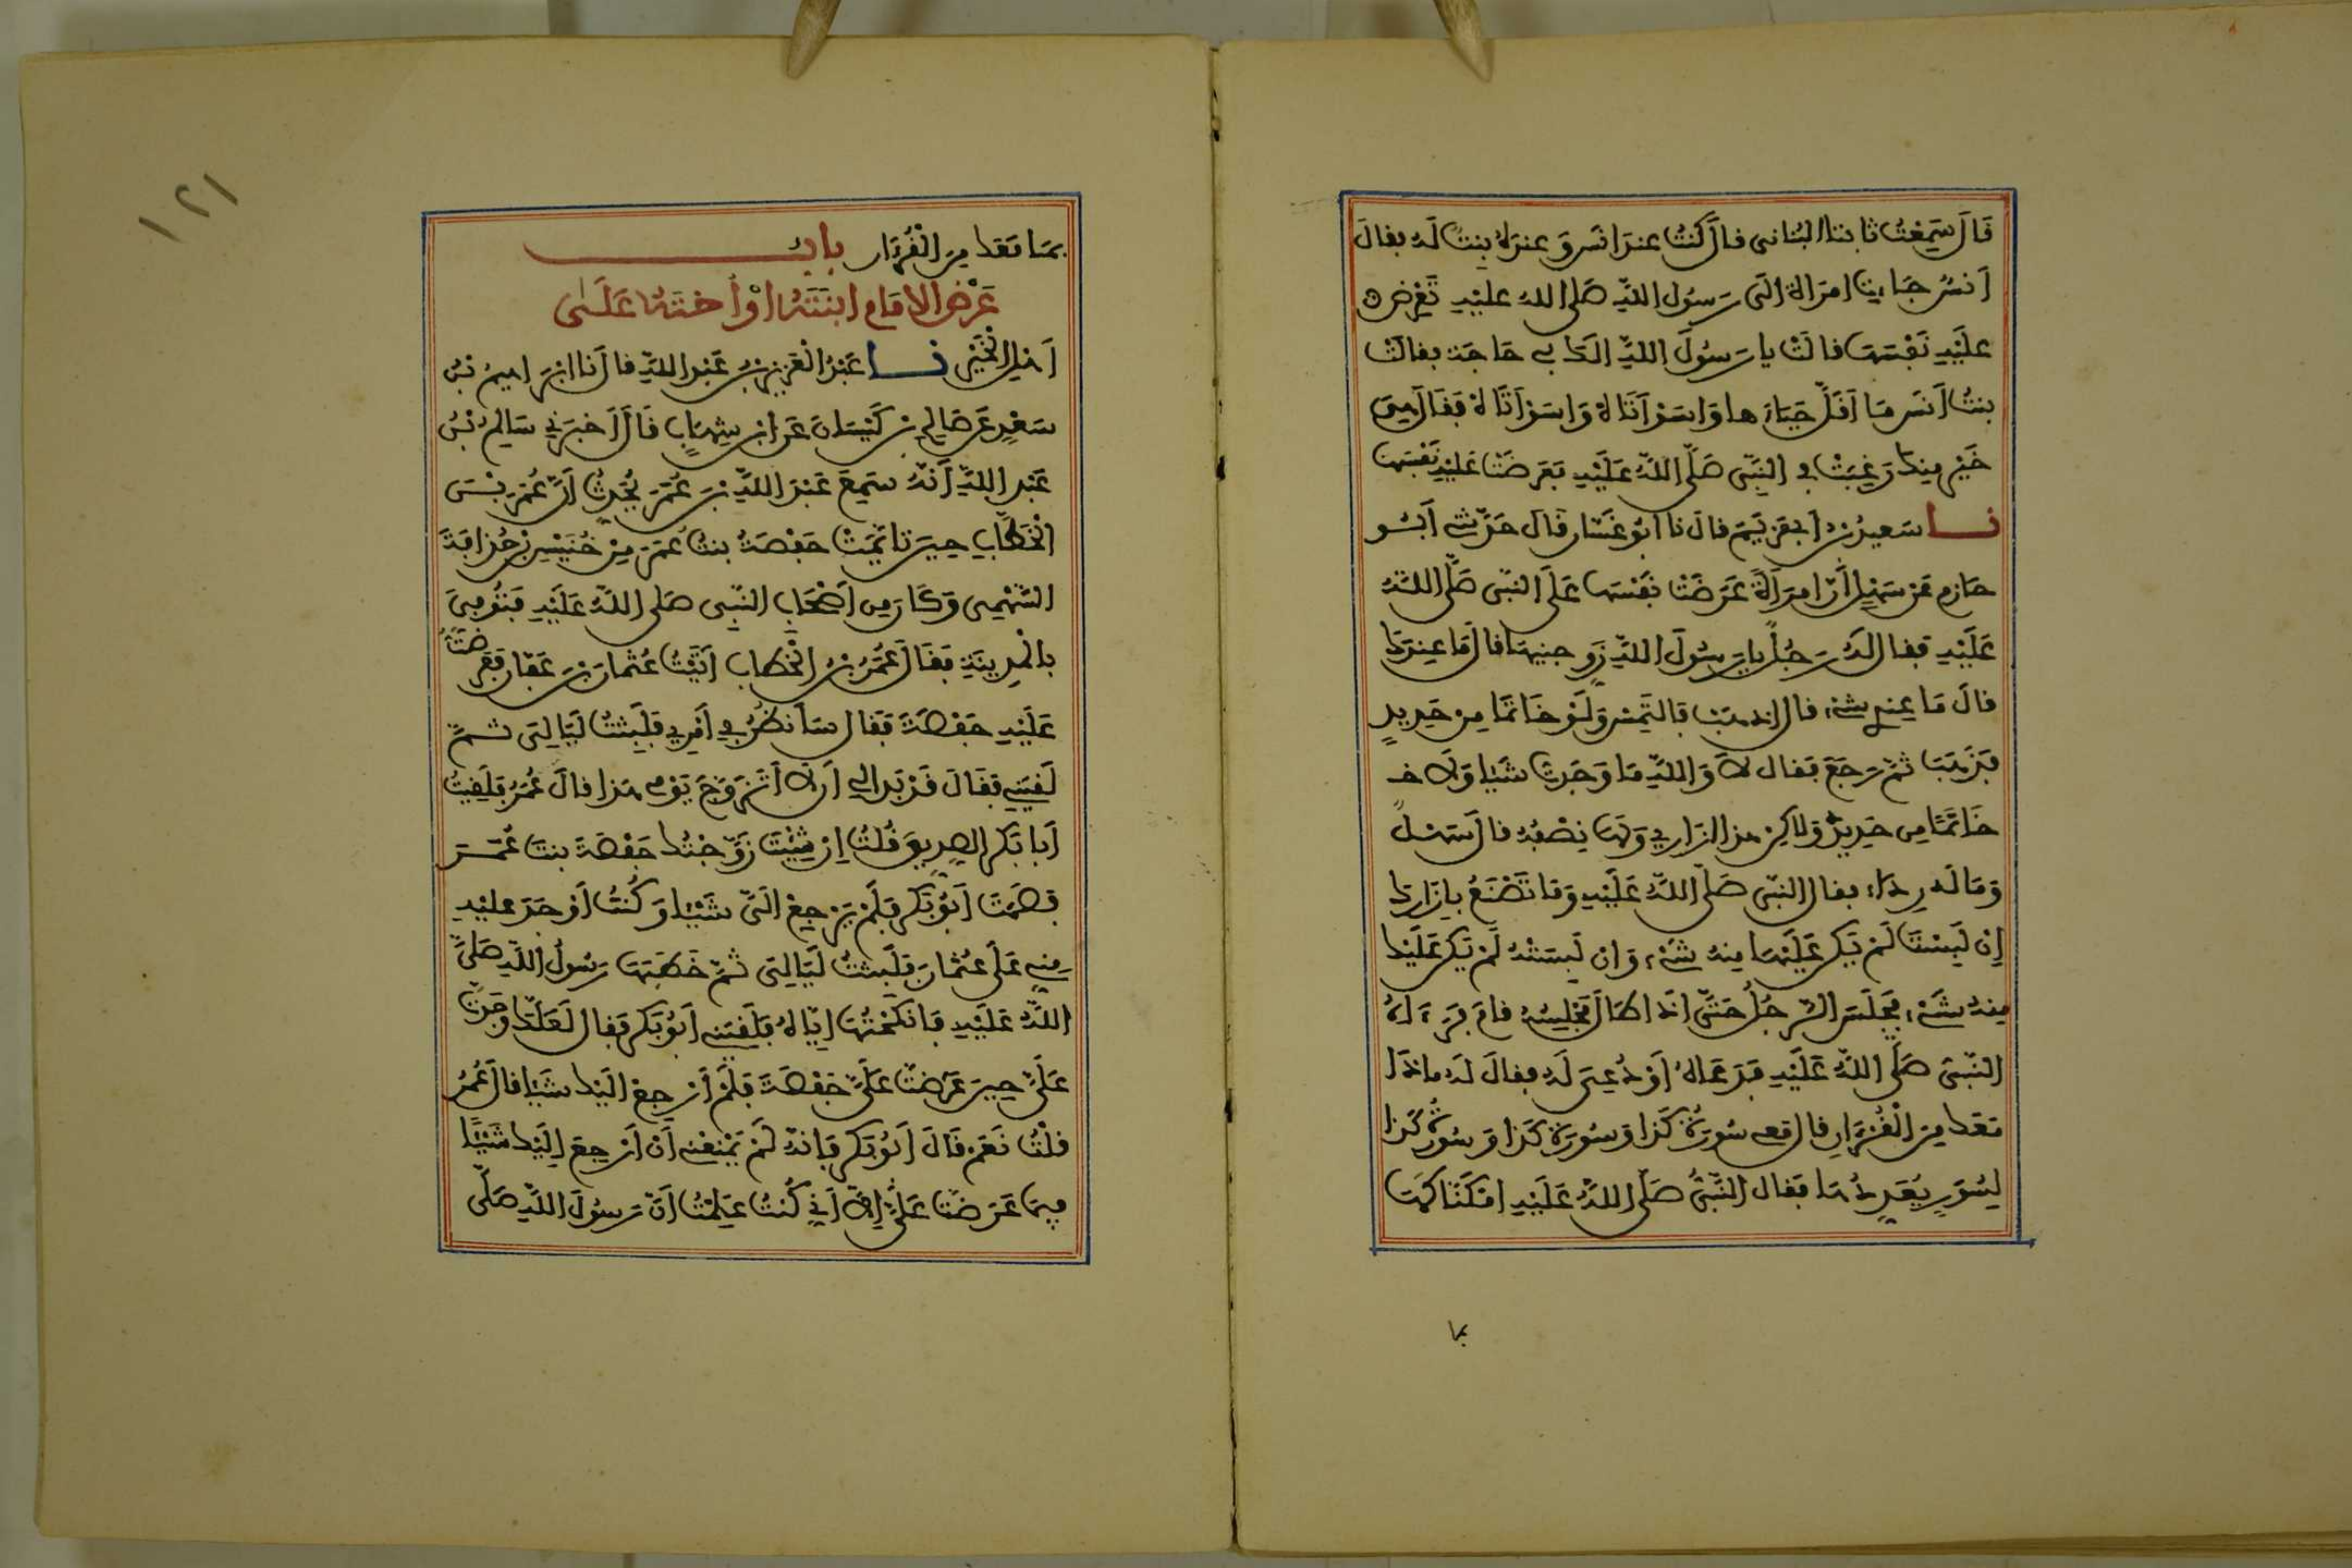 قَالَ سَمِعْتُ ثابتا البُنانى قال كُنْتُ عندَ انَسٍ وَعندَهُ بِنتٌ لَهُ فقالَ
أنسٌ جَاءت امرَاة الَى رَسُول اللهِ صَلى الله عليْهِ تَعْرِضُ
عليْهِ نَفْسَهَا قالَتْ يا رَسُولَ اللهِ الَكَ بى حَاجَة فقالَتْ
بنتُ أنَسٍ مَا أَقَلَّ حَيَاءَها وَاسَوْأتَاهْ وَاسَوْأتَاهْ فَقَالَ هِىَ
خَيْرٌ مِنكِ رَغِبَتْ فى النَّبِى صَلَّى اللهُ عَلَيْهِ فعَرَضَتْ عَلَيْهِ نَفْسَهَا
نا سَعيدُ بنُ أبى مَرْيَمَ قال نا ابُو غَسّان قَالَ حَدَّثنى أَبُو
حَازِمٍ عَنْ سَهْلٍ أنّ امرَأَةً عَرَضَتْ نَفْسَهَا عَلَى النبى صَلَّى اللهُ
عَلَيْهِ فقال لَهُ رَجُلٌ يا رَسُولَ اللهِ زَوِّجنيهَا قال مَا عِندَكَ
قالَ مَا عِندِى شىْء قال اذهَبْ فالتَمِسْ وَلَوْ خَاتمًا مِن حَدِيدٍ
فَذَهَبَ ثمّ رَجَعَ فقال لاَ وَاللهِ مَا وَجَدتُ شَيْئا وَلاَ
خَاتمًا مِن حَدِيدٍ وَلاكِن هذا إزَارِى وَلهَا نِصْفُهُ قال سَهْلٌ
وَمَا لَهُ رِدَاء فقال النبى صَلَّى اللهُ عَلَيْهِ وَمَا تَصْنَعُ بِإِزَارِكَ
إِن لَبِسْتَهُ لَمْ يَكن عَلَيْهَا مِنهُ شَىْء وَان لَبِسَتْهُ لَمْ يَكن عَلَيْكَ
مِنهُ شَىْء فجَلَسَ الرّجُلُ حَتّى اذَا طَالَ مَجْلِسُهُ قامَ فَرَءَاهُ
النّبىُ صَلَّى اللهُ عَلَيْهِ فَدَعَاهُ أَوْ دُعِىَ لَهُ فقالَ لَهُ ماذَا
مَعَكَ مِنَ الْقُرْءَانِ قال مَعى سُورَةُ كَذَا وَسُورَةُ كَذَا وَسُورَةُ كَذا
لِسُوَرٍ يُعَدِّدُهَا فقال النّبىُّ صَلَّى اللهُ عَلَيْهِ امْكَنّاكَهَا
بما
١٢١
بمَا مَعَكَ مِنَ الْقُرْءَان بابُ
عَرْض الامَام ابنَتَهُ اوْ أُختَهُ عَلَى
أهْلِ الْخَيْرِ نا عَبْدُ الْعَزِيزِ بْنُ عَبْد اللهِ قال نا ابرَاهيمُ بْنُ
سَعْدٍ عَن صَالِحِ بْن كَيْسَانَ عَن ابْنِ شِهَابٍ قَالَ أخبَرَنِى سَالِمُ بْنُ
عَبْد اللهِ أَنَّهُ سَمِعَ عَبْدَ اللهِ بْنَ عُمَرَ يُحَدِّثُ أَنَّ عُمَرَ بْنَ
الْخَطَّابِ حِينَ تَأيّمَتْ حَفْصَةُ بنتُ عُمَرَ مِنْ خُنَيْسِ بْنِ حُذَافَةَ
السَّهْمِى وَكَانَ مِن أَصْحَابِ النّبِى صَلى اللهُ عَلَيْهِ فَتُوُفِىَ
بالْمَدِينَةِ فقَالَ عُمَرُ بْنُ الْخَطاب أتَيْتُ عُثمانَ بْنَ عَفّان فَعَرَضْتُ
عَلَيْهِ حَفْصَةَ فَقال سَأنظُرُ فى أَمْرِى فَلَبِثْتُ لَيَالِىَ ثمّ
لَقِيَنِى فقَالَ قَدْ بَدَا لِى أَن لاَ أَتَزَوَّجَ يَوْمى هَذا قالَ عُمَرُ فَلَقِيتُ
أَبَا بَكرٍ الصِّدِيقَ فقُلتُ إِنْ شِئْتَ زَوَّجْتُكَ حَفْصَةَ بنتَ عُمَرَ
فصَمَتَ أَبُو بَكرٍ فَلَمْ يَرْجِعْ الَىَّ شَيْئا وَكُنْتُ أَوْجَدَ عليْهِ
مِنى عَلَى عُثمَانَ فلَبِثْتُ لَيَالِىَ ثمّ خَطَبَهَا رَسُولُ اللهِ صَلَّى
اللهُ عَلَيْهِ فَأَنكَحْتُهَا إيّاهُ فلَقِيَنِى أبُو بَكرٍ فقال لَعَلَّكَ وَجَدتَ
عَلَىَّ حِينَ عَرَضتَ عَلَىَّ حَفْصَةَ فَلَمْ أَرْجِعْ الَيْكَ شَيْئا قالَ عُمَرُ
قلْتُ نَعَمْ قَالَ أَبُو بَكرٍ فَإنهُ لَمْ يَمْنَعْنِى أَنْ أَرْجِعَ إِلَيْكَ شَيْئًا
فِيمَا عَرَضْتَ عَلَىَّ إلاّ أَنِّى كُنْتُ عَلِمْتُ أَنَّ رَسُولَ اللهِ صَلَّى